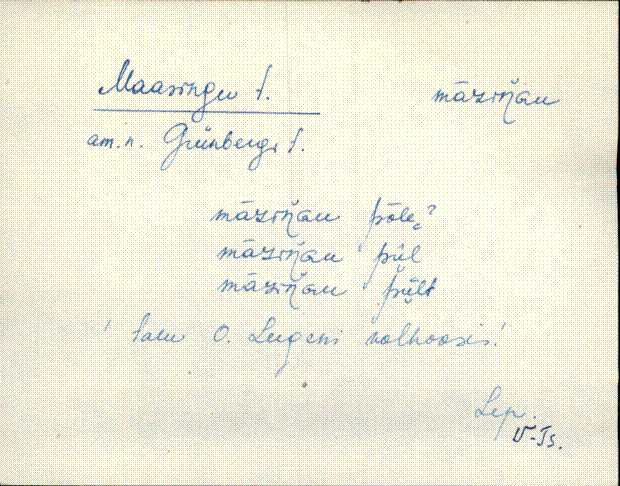 Maasingu t. māziŋ̆au
am.n. Grünbergi t.
māziŋ̆au pōle?
māziŋ̆au pūl
māziŋ̆au pūlt
talu O. Lugeni valdoosis!
Lep.
V-Ts.